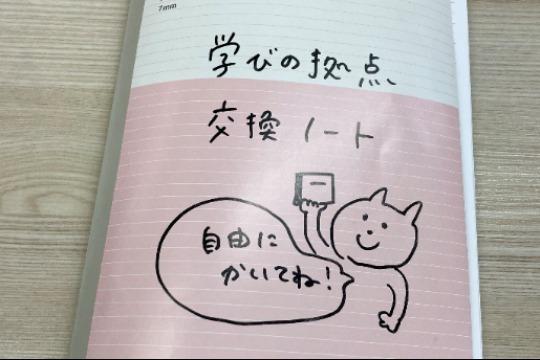 7mm
学びの拠点
交換ノート
自由に
かいてね！